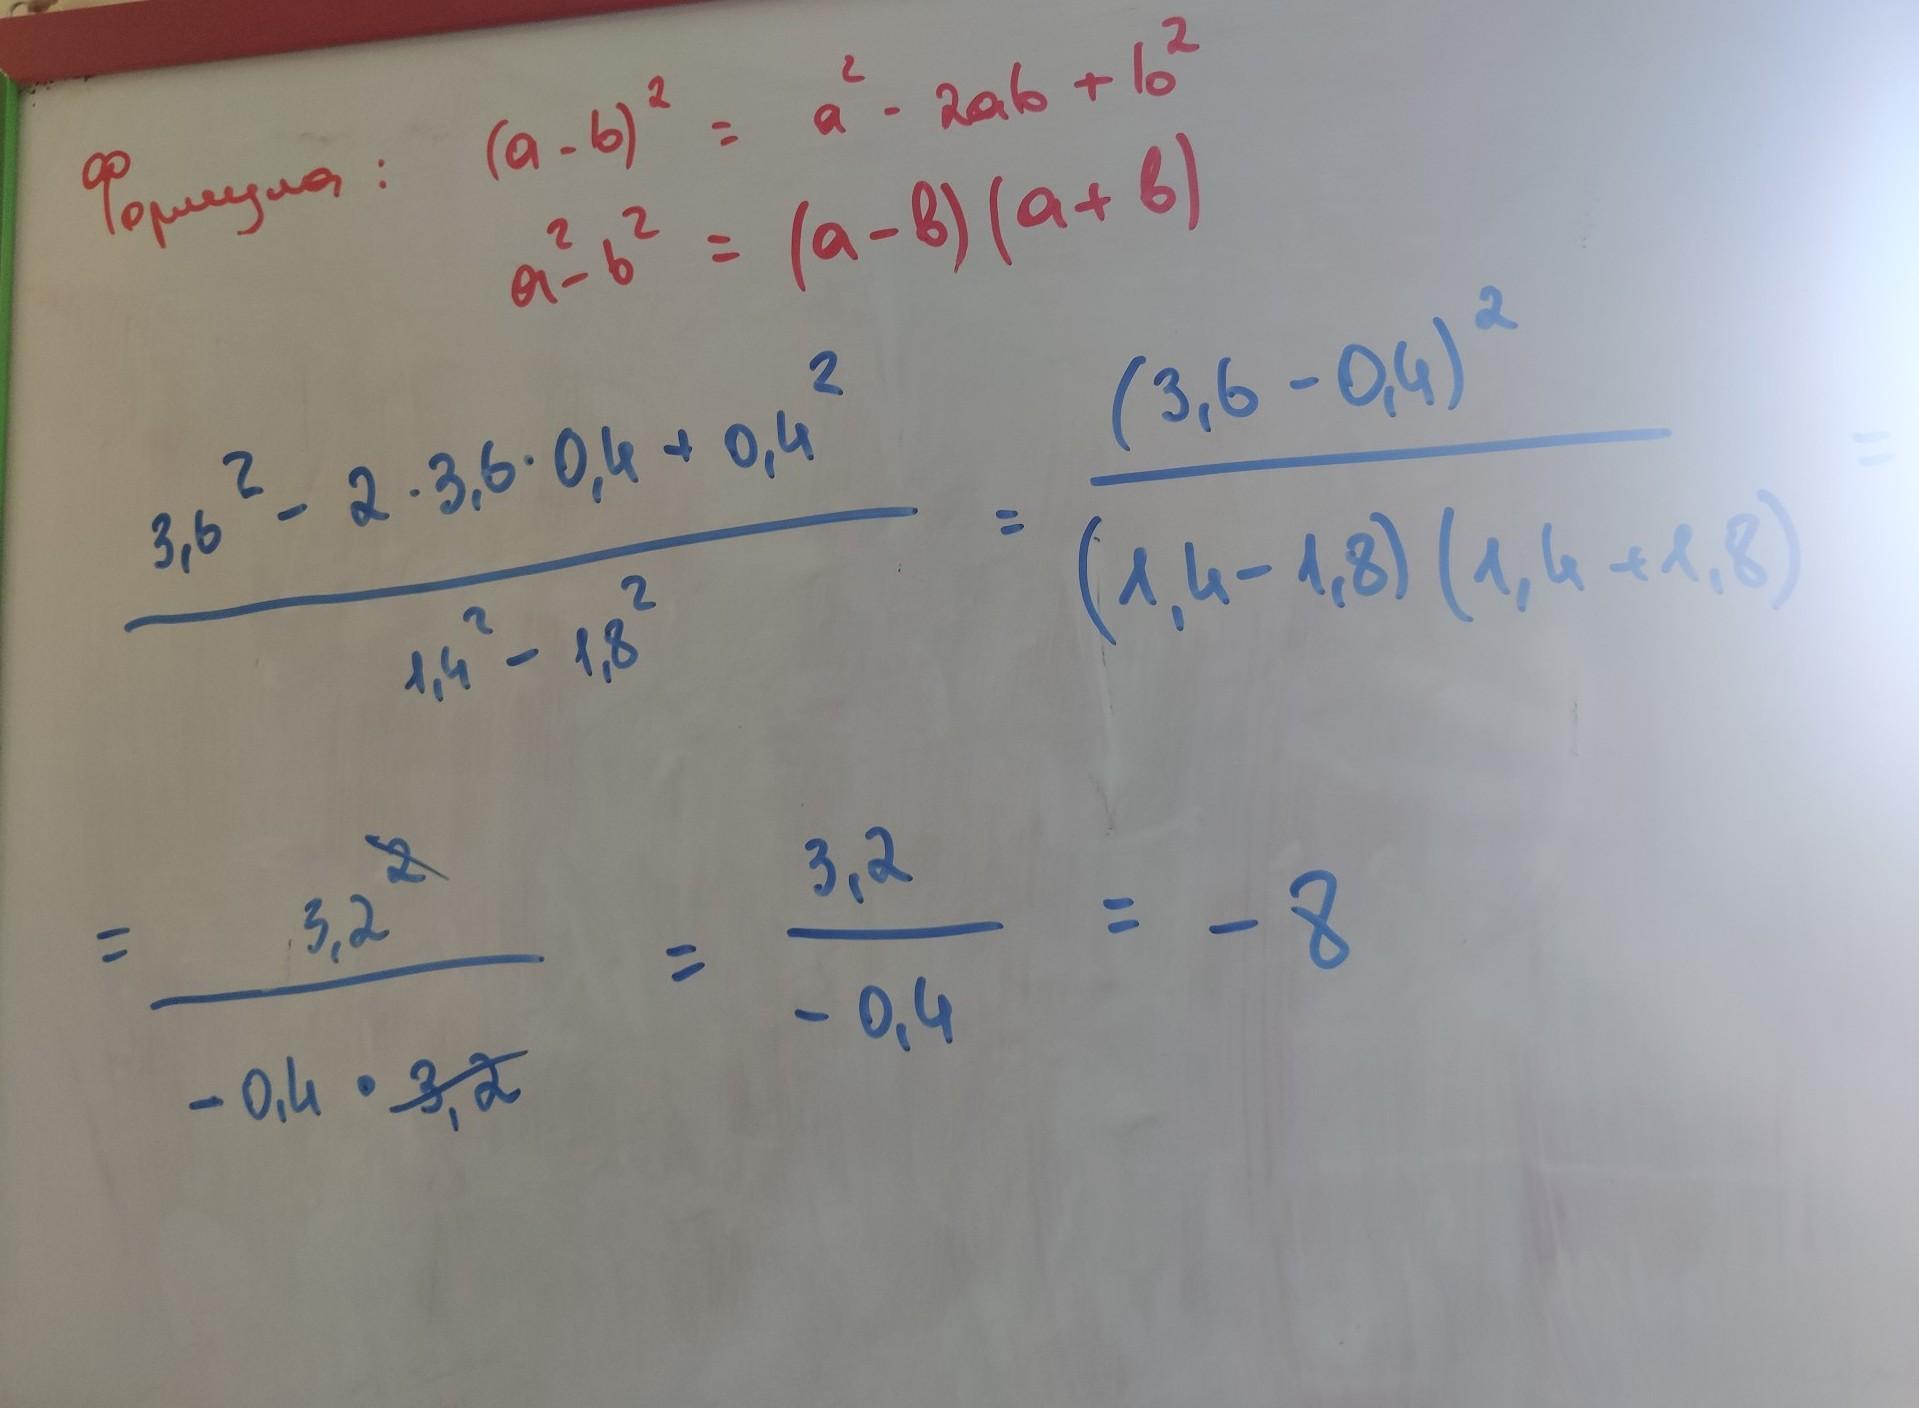 Формула: (a-b)² = a² - 2ab + b²
a² - b² = (a-b)(a+b)
(3,6² - 2·3,6·0,4 + 0,4²)/(1,4² - 1,8²) = (3,6 - 0,4)²/((1,4 - 1,8)(1,4 + 1,8)) =
= 3,2²/(-0,4 · 3,2) = 3,2/(-0,4) = -8